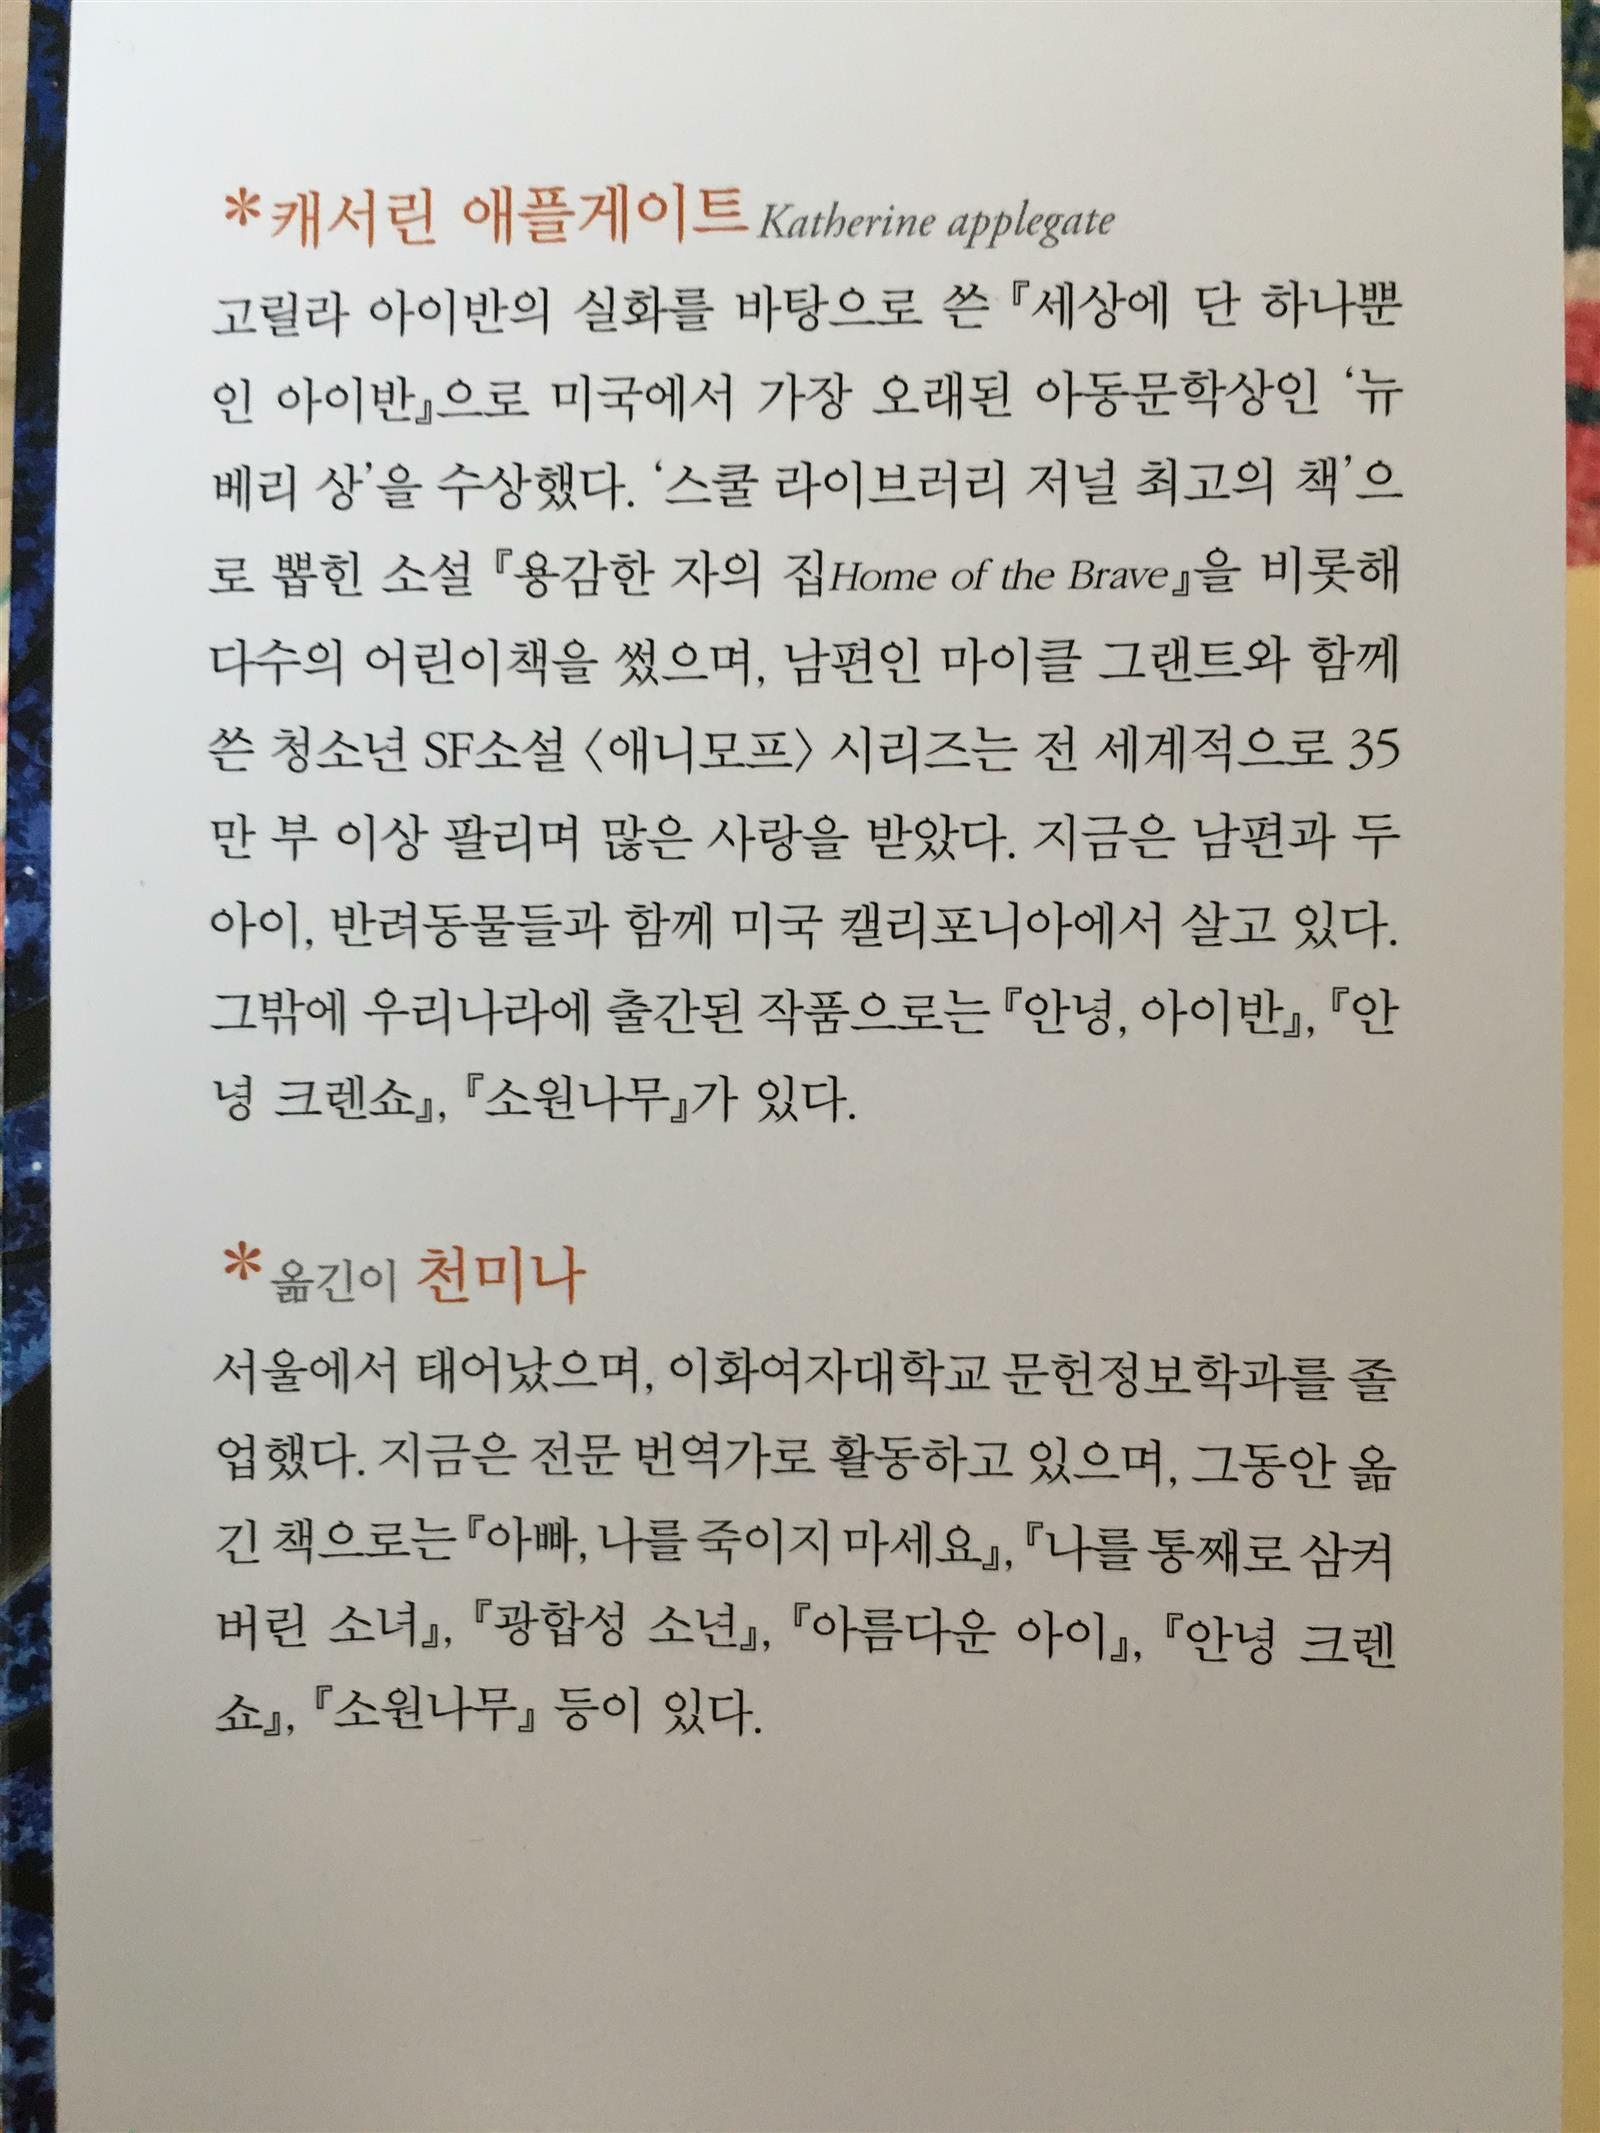 *캐서린 애플게이트 Katherine applegate
고릴라 아이반의 실화를 바탕으로 쓴 『세상에 단 하나뿐
인 아이반』으로 미국에서 가장 오래된 아동문학상인 ‘뉴
베리 상’을 수상했다. ‘스쿨 라이브러리 저널 최고의 책’으
로 뽑힌 소설 『용감한 자의 집Home of the Brave』을 비롯해
다수의 어린이책을 썼으며, 남편인 마이클 그랜트와 함께
쓴 청소년 SF소설 〈애니모프〉 시리즈는 전 세계적으로 35
만 부 이상 팔리며 많은 사랑을 받았다. 지금은 남편과 두
아이, 반려동물들과 함께 미국 캘리포니아에서 살고 있다.
그밖에 우리나라에 출간된 작품으로는 『안녕, 아이반』, 『안
녕 크렌쇼』, 『소원나무』가 있다.
*옮긴이 천미나
서울에서 태어났으며, 이화여자대학교 문헌정보학과를 졸
업했다. 지금은 전문 번역가로 활동하고 있으며, 그동안 옮
긴 책으로는 『아빠, 나를 죽이지 마세요』, 『나를 통째로 삼켜
버린 소녀』, 『광합성 소년』, 『아름다운 아이』, 『안녕 크렌
쇼』, 『소원나무』 등이 있다.